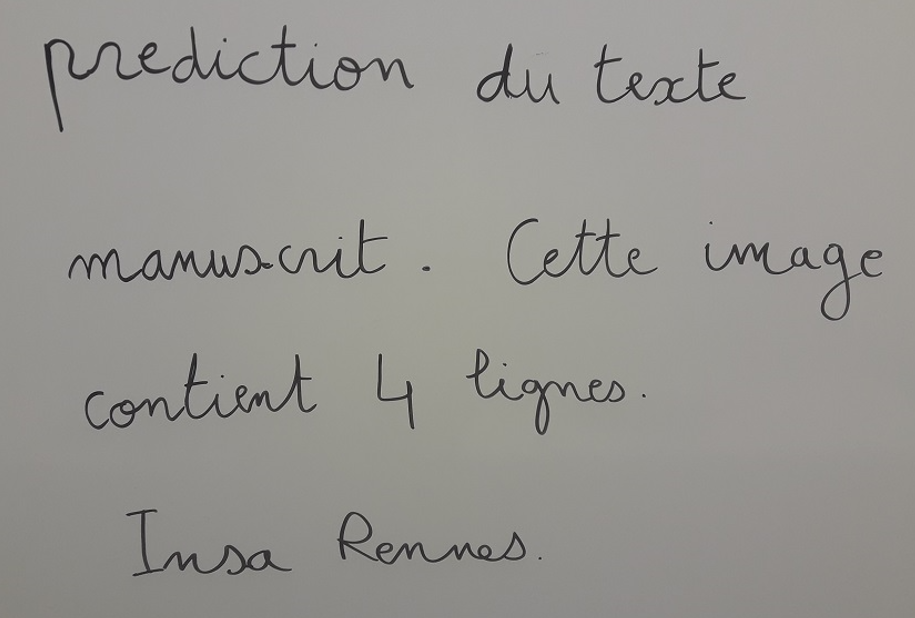 prediction du texte
manuscrit. Cette image
contient 4 lignes.
Insa Rennes.